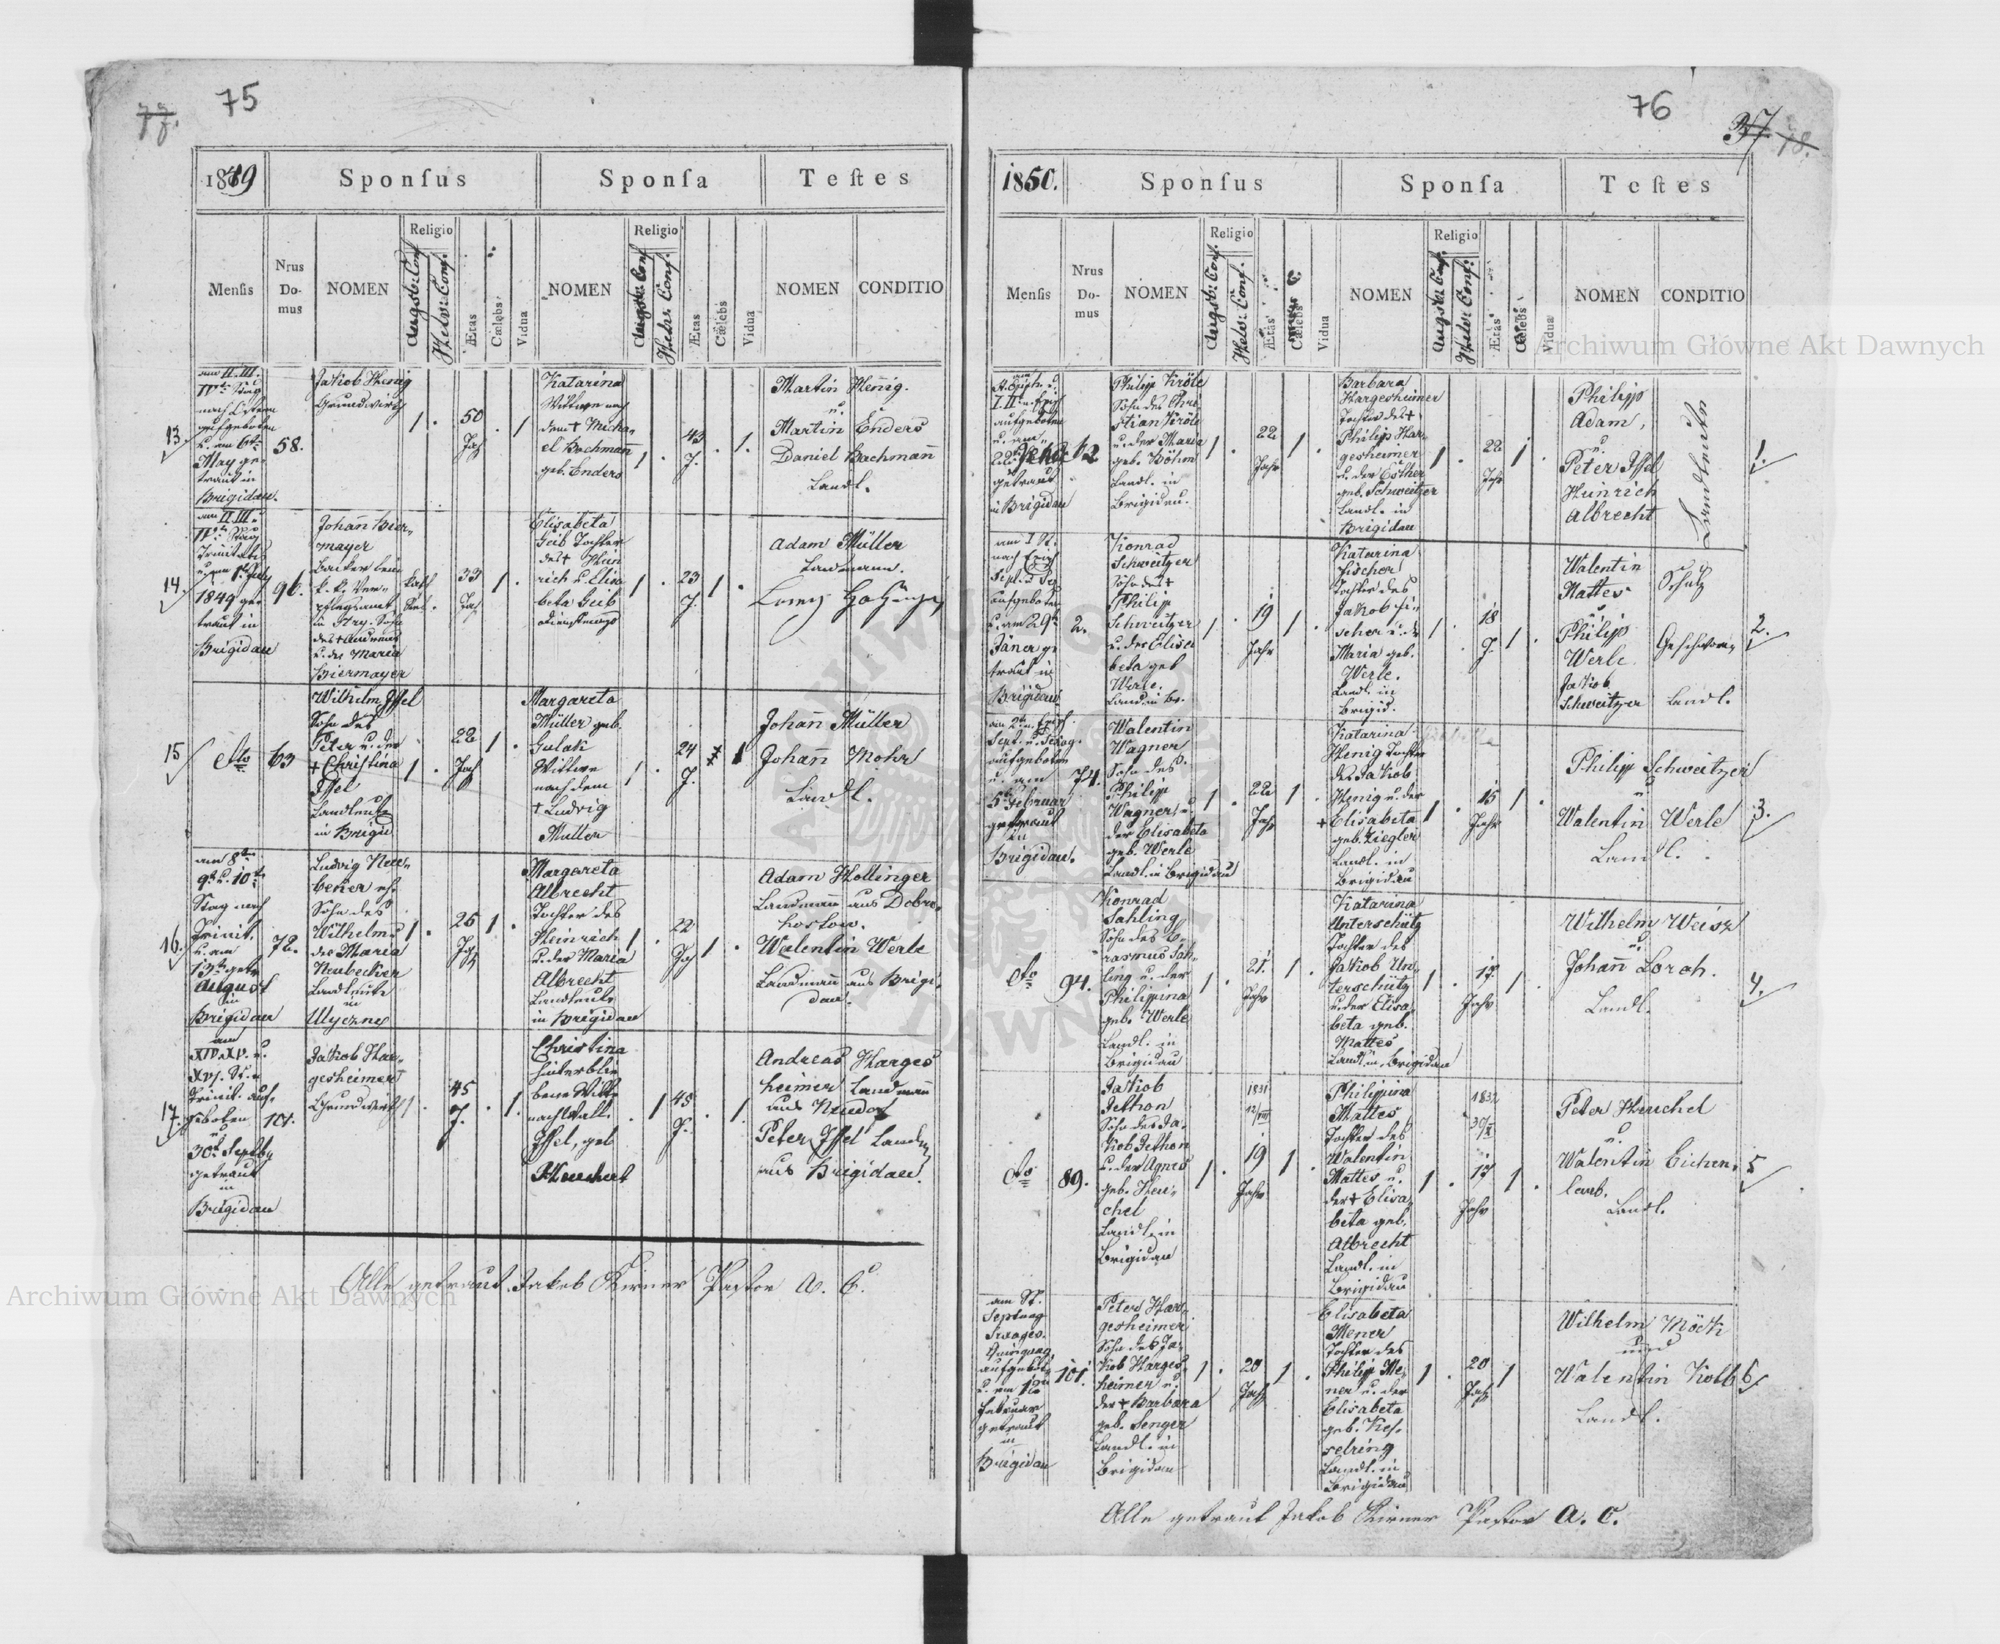 77.
75
1849
Sponſus
Sponſa
Teſtes
Menſis
Nrus
Do-
mus
NOMEN
Religio
Augsb: Conf.
Helv: Conf.
Ætas
Cælebs
Vidua
NOMEN
Religio
Augsb: Conf
Helv: Conf.
Ætas
Cælebs
Vidua
NOMEN
CONDITIO
13
am II. III.
IVten Stag
nach Ostern
aufgeboten
u. am 6ten
May ge-
traut in
Brigidau.
58.
Jakob Henig
Grundwirth
1 .
50
Jah
. 1
Katarina
Wittwe nach
dem + Micha-
el Bachmañ
geb. Enders
1 .
43
J.
. 1.
Martin Henig.
u.
Martin Enders
Daniel Bachmañ
Landl.
14.
am II. III. u
IVten Stag
Trinitatis
u. am 1t July
1849 ge-
traut in
Brigidau
96.
Johañ Bier-
mayer
Bäcker beim
k. k. Ver-
pflegsamt
in Stry. Sohn
des + Andreas
u. der Maria
Biermayer
33
Jah
1 .
Elisabeta
Geib Tochter
des + Hein
rich u. Elisa
beta Geib
1 .
23
J.
1 .
Adam Müller
Landmann.
15
dto
63
Wilhelm Issel
Sohn des
Peter u. der
+ Christina
Issel
Landleute
in Brigid
1 .
22
Jah
1 .
Margareta
Müller geb.
Gulak
Wittwe
nach dem
+ Ludwig
Müller
1 .
24
J.
1
Johañ Müller
Johañ Mohr
Landl.
16.
am 8ten
9t u. 10ten
Stag nach
Trinit.
u. am
13ten getr
August
in
Brigidau
72.
Ludwig Neu-
beker
Sohn des
Wilhelm u
der Maria
Neubecker
Landleute
in
Uyczna
1 .
25
Jah
1 .
Margareta
Albrecht
Tochter des
Heinrich
u. der Maria
Albrecht
Landleute
in Brigidau
1 .
22
Jah
1 .
Adam Hollinger
Landmañ aus Dobro-
hostow.
Walentin Werle
Landmañ aus Brigi-
dau.
17.
am
XIV. XV. u.
XVI. St. n
Trinit. auf-
geboten
u
30t Septb
getraut
in
Brigidau
101.
Jakob Har-
gesheimer
Grundwirth
1 .
45
J.
. 1.
Christina
hinterblie
bene Wittw
nach Walt.
Issel, geb
Heuchert
. 1
45
J.
. 1.
Andreas Harges
heimer Landmañ
aus Neudorf
Peter Issel Landm
aus Brigidau.
Alle getraut Jakob Kirner Pastor A. C.
76
37
78.
1850.
Sponſus
Sponſa
Teſtes
Menſis
Nrus
Do-
mus
NOMEN
Religio
Augsb: Conf.
Helv: Conf.
Ætas
Cælebs
Vidua
NOMEN
Religio
Augsb: Conf.
Helv: Conf.
Ætas
Cælebs
Vidua
NOMEN
CONDITIO
aufgeboten
u. am
22
getraut
in Brigidau
62
Philipp Kröle
Sohn des Chri
stian Kröle
u. der Maria
geb. Böhm
Landl. in
Brigidau.
1 .
22
Jahr
1 .
Barbara
Hargesheimer
Tochter des +
Philipp Har-
gesheimer
u. der Esther
geb. Schweitzer
Landl. in
Brigidau
1 .
22
Jah
1 .
Philipp
Adam,
u.
Peter Issel
Heinrich
Albrecht
Landleute
1.
am I St.
nach Epiph
Sept. u Sex
aufgeboten
u. am 29t
Jäner ge
traut in
Brigidau
2.
Konrad
Schweitzer
Sohn des +
Philip
Schweitzer
u. der Elisa
beta geb
Werle.
Landl. in Br.
1 .
19
Jahr
1 .
Katarina
Fischer
Tochter des
Jakob Fi-
scher u. d.
Maria geb.
Werle.
Landl. in
Brigid.
1 .
18
J.
1 .
Walentin
Mattes
u
Philipp
Werle
Jakob
Schweitzer
Schulz
Geschworn
Landl.
2.
aufgeboten
u. am
5t Februar
getraut
in
Brigidau.
74.
Walentin
Wagner
Sohn des
Philipp
Wagner u
der Elisabeta
geb. Werle
Landl. in Brigidau
1 .
22
Jah
1 .
Katarina
Henig Tochter
des Jakob
Henig u. der
+ Elisabeta
geb. Ziegler
Landl. in
Brigidau
1 .
15
Jahr
1 .
Philipp Schweitzer
u
Walentin Werle
Landl.
3.
dto
94.
Konrad
Sahling
Sohn des E-
rasmus Sah-
ling u. der
Philippina
geb. Werle
Landl. in
Brigidau
1 .
21.
Jahr
1 .
Katarina
Unterschütz
Tochter des
Jakob Un-
terschütz
u. der Elisa-
beta geb.
Mattes
Landl. in Brigidau
1 .
17
Jahr
1 .
Wilhelm Weisz
u.
Johañ Lorah.
Landl.
4.
dto
89.
Jakob
Jethon
Sohn des Ja-
kob Jethon
u. der Agnes
geb. Heu-
chel
Landl. in
Brigidau
1 .
1831
12/VIII
19
Jahr
1 .
Philippina
Mattes
Tochter des
Walentin
Mattes u.
der + Elisa-
beta geb.
Albrecht
Landl. in
Brigidau
1 .
1832
30/X
17
Jahr
1 .
Peter Heuchel
u.
Walentin Eichen-
laub.
Landl.
5
am St.
Septuag
Sexages.
Quinquag.
aufgebot
u. am 12t
Februar
getraut
in
Brigidau
101.
Peter Har-
gesheimer
Sohn des Ja-
kob Harges-
heimer u.
der + Barbara
geb. Senger
Landl. in
Brigidau
1 .
20
Jah
1 .
Elisabeta
Mener
Tochter des
Philipp Me-
ner u. der
Elisabeta
geb. Kes-
selring
Landl. in
Brigidau
1 .
20
Jah
1
Wilhelm Möck
und
Walentin Kolb
Landl.
6.
Alle getraut Jakob Kirner Pastor A. C.
Archiwum Główne Akt Dawnych
Archiwum Główne Akt Dawnych